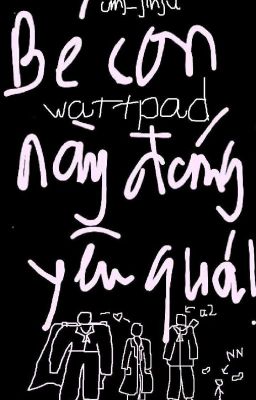 Be con
wattpad
này đáng
yêu quá!
a2
NN